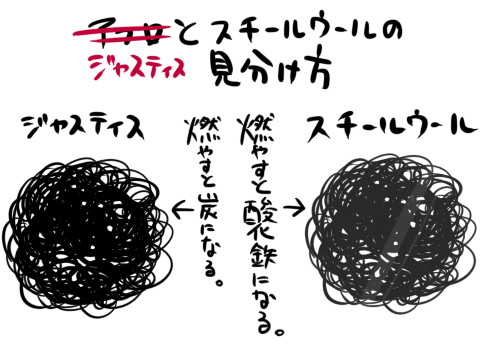 アフロとスチールウールの
ジャスティス 見分け方
ジャスティス
燃やすと炭になる。
燃やすと酸化鉄になる。
スチールウール